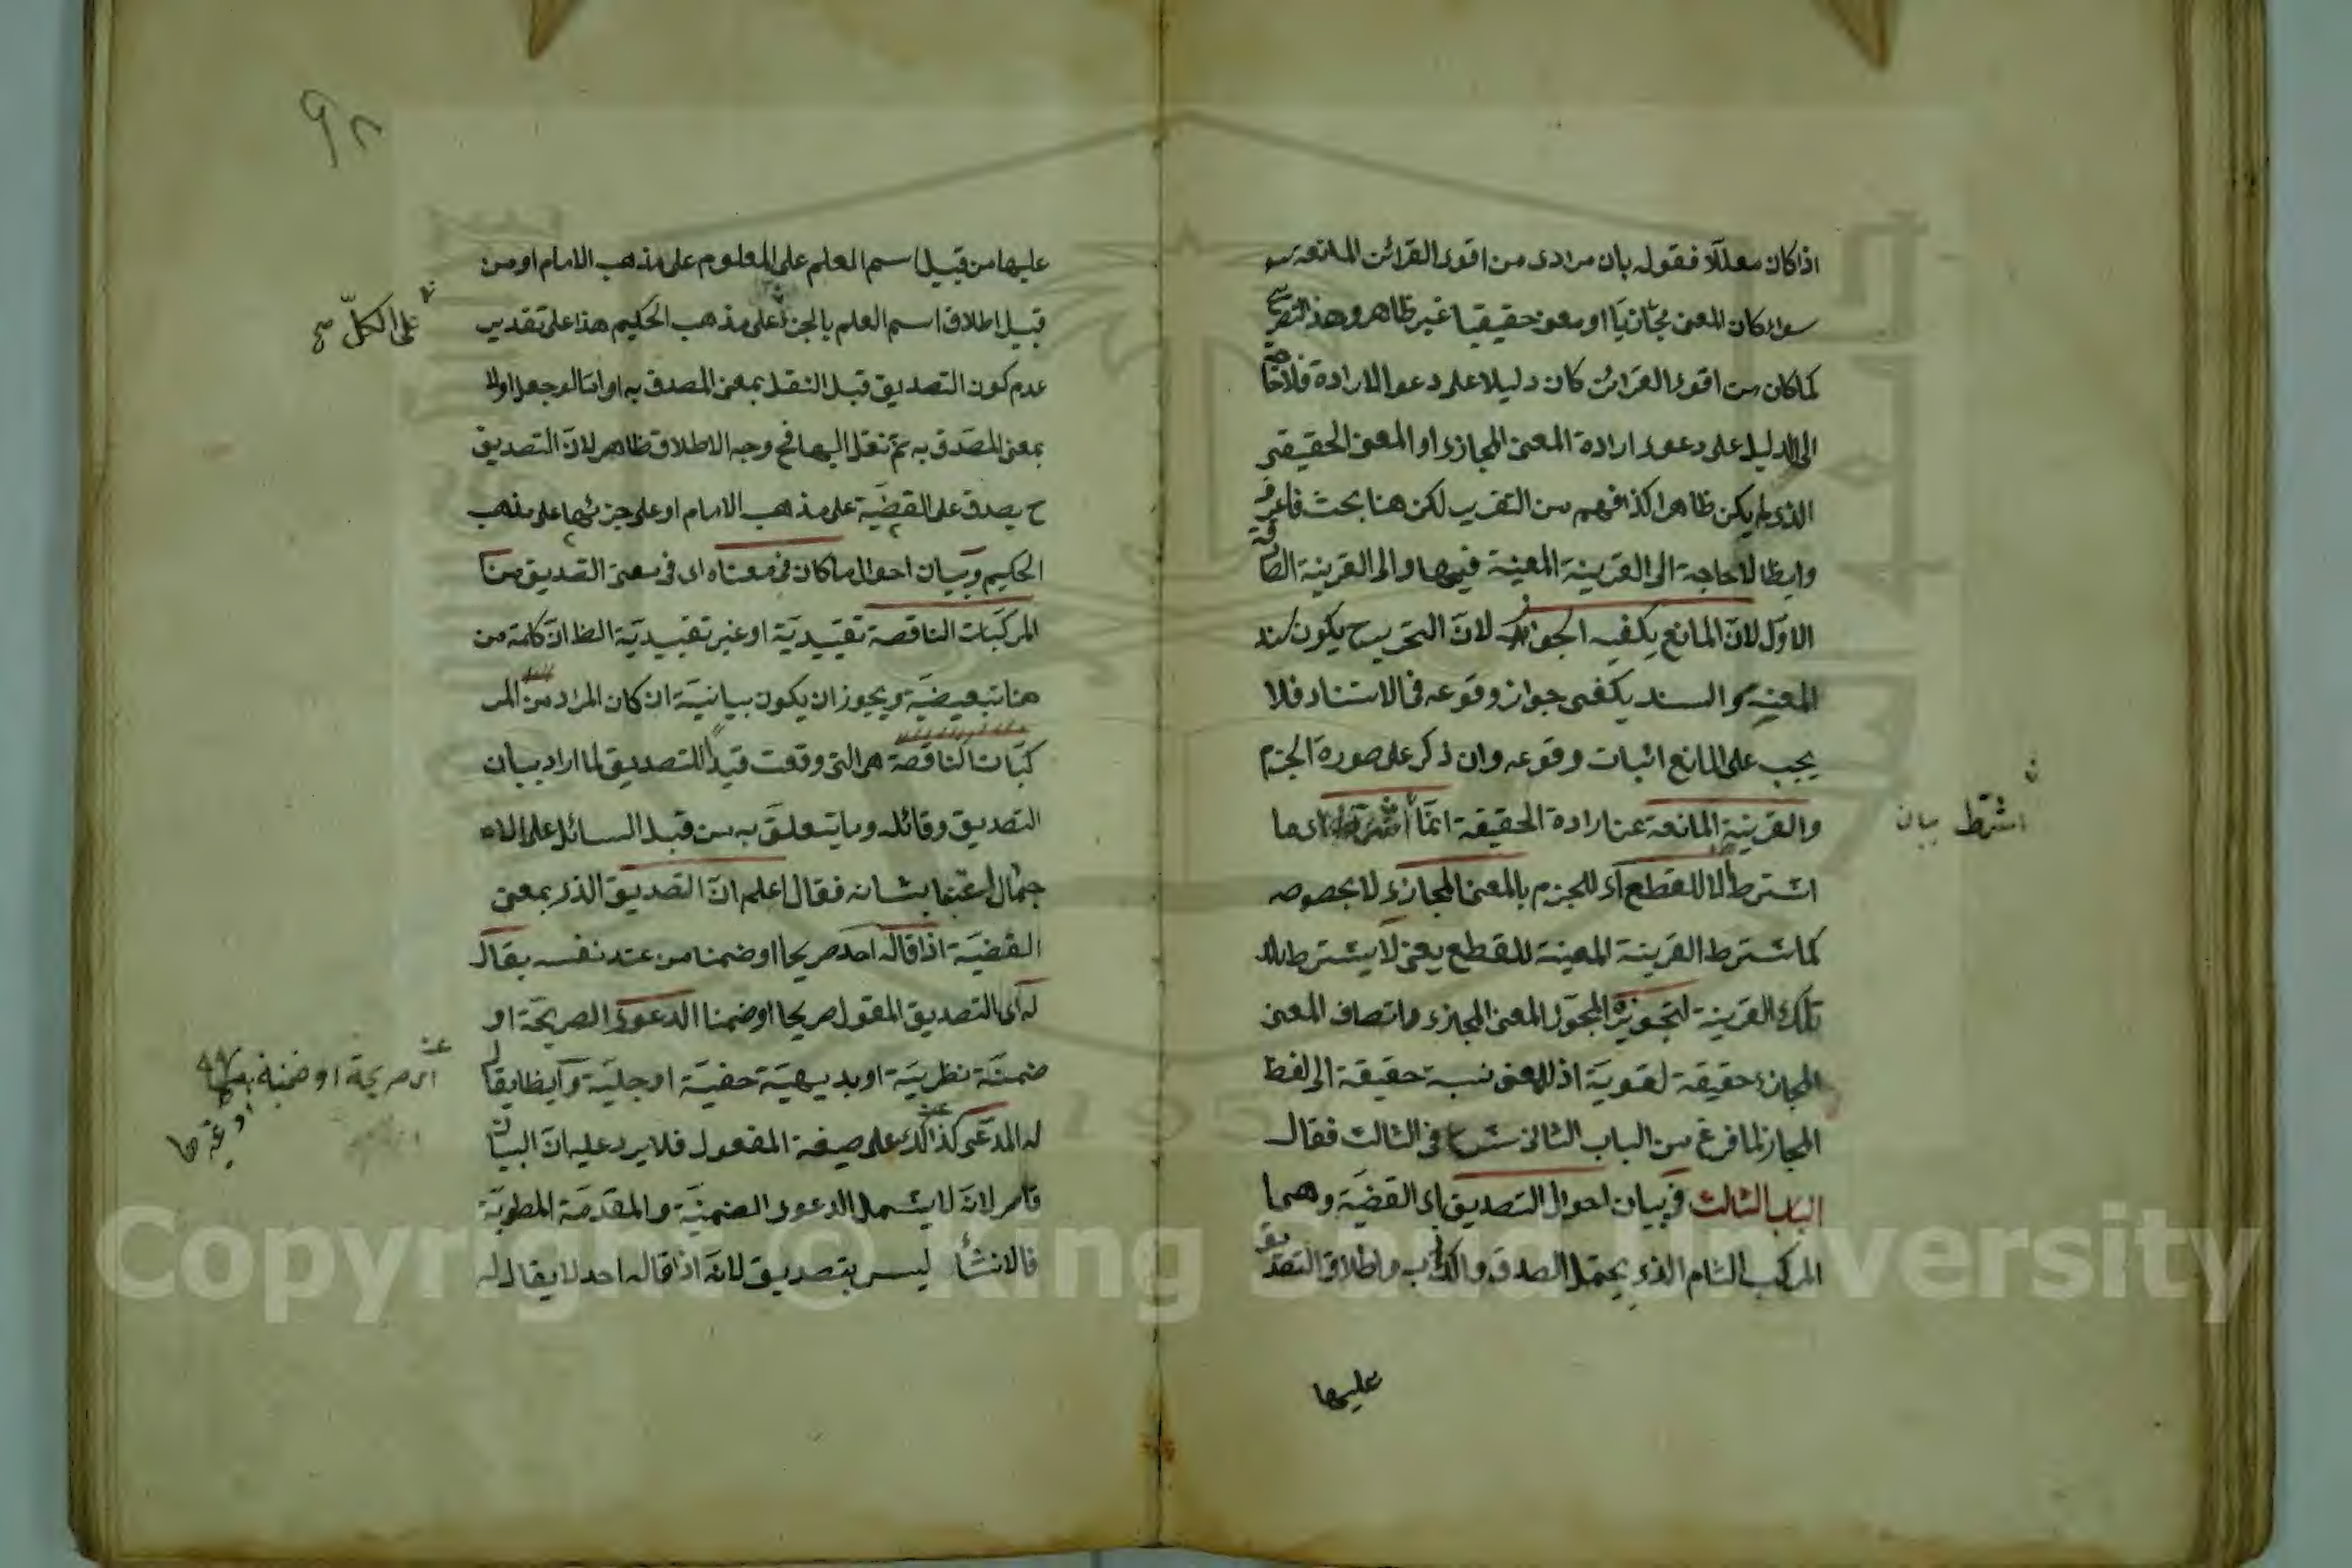 اذا كان معللا فقوله بان مرادى من اقوى القرائن المانعة سو
سواء كان المعنى مجازيا او معنى حقيقيا غير ظاهر وهذا التصريح
كما كان من اقوى القرائن كان دليلا على دعوى الارادة فلا حاجة
الى الدليل على دعوى ارادة المعنى المجازى او المعنى الحقيقى
الذى لم يكن ظاهرا كذا فهم من التقرير لكن هنا بحث فاعرف
وايضا لا حاجة الى القرينة المعينة فيها والى القرينة الصارفة
الاول لان المانع يكفيه الجواز لان التحرير ح يكون سند
المعنيه والسند يكفى جواز وقوعه فى الاستناد فلا
يجب على المانع اثبات وقوعه وان ذكر على صورة الجزم
والقرينة المانعة عن ارادة الحقيقة انما اى ما
اشترط الا للقطع اى للجزم بالمعنى المجازى لا بخصوصه
كما تشترط القرينة المعينة للقطع يعنى لا يشترط
تلك القرينة لتجويزه المجوز المعنى المجازى واتصاف المعنى
المجازى حقيقة لغوية اذ للمعنى نسبة حقيقة الى لفظ
المجاز لما فرغ من الباب الثانى شرع فى الثالث فقال
الباب الثالث فى بيان احوال التصديق اى القضية وهما
المركب التام الذى يحتمل الصدق والكذب واطلاق التصديق
عليها
اشترط بيان
٩٨
عليها من قبيل اسم العلم على المعلوم على مذهب الامام او من
قبيل اطلاق اسم العلم بالجزء على مذهب الحكيم هذا على تقدير
عدم كون التصديق قبل النقل بمعنى المصدق به او اما لو جعل اولا
بمعنى المصدق به ثم نقل اليها فح وجه الاطلاق ظاهر لان التصديق
ح يصدق على القضية على مذهب الامام او على جزئها على مذهب
الحكيم وبيان احوال ما كان فى معناه اى فى معنى التصديق من
المركبات الناقصة تقييدية او غير تقييدية الظ ان كلمة من
هنا تبعيضية ويجوز ان يكون بيانية ان كان المراد من المر
كبات الناقصة هى التى وقعت قيدا للتصديق لما اراد بيان
التصديق وقائله وما يتعلق به من قبل السائل على الا
جمال اعتناء بشانه فقال اعلم ان التصديق الذى بمعنى
القضية اذا قاله احد صريحا او ضمنا من عند نفسه يقال
له اى التصديق المقول صريحا او ضمنا الدعوى الصريحة او
ضمنية نظرية او بديهية خفية او جلية وايضا يقال
له المدعى كذلك على صيغة المفعول فلا يرد عليه ان البيان
قاصر لانه لا يشمل الدعوى الضمنية والمقدمة المطوية
فالانشاء ليس بتصديق لانه اذا قاله احد لا يقال له
على الكل صح
اى صريحة او ضمنية
او غيرها
Copyright © King Saud University